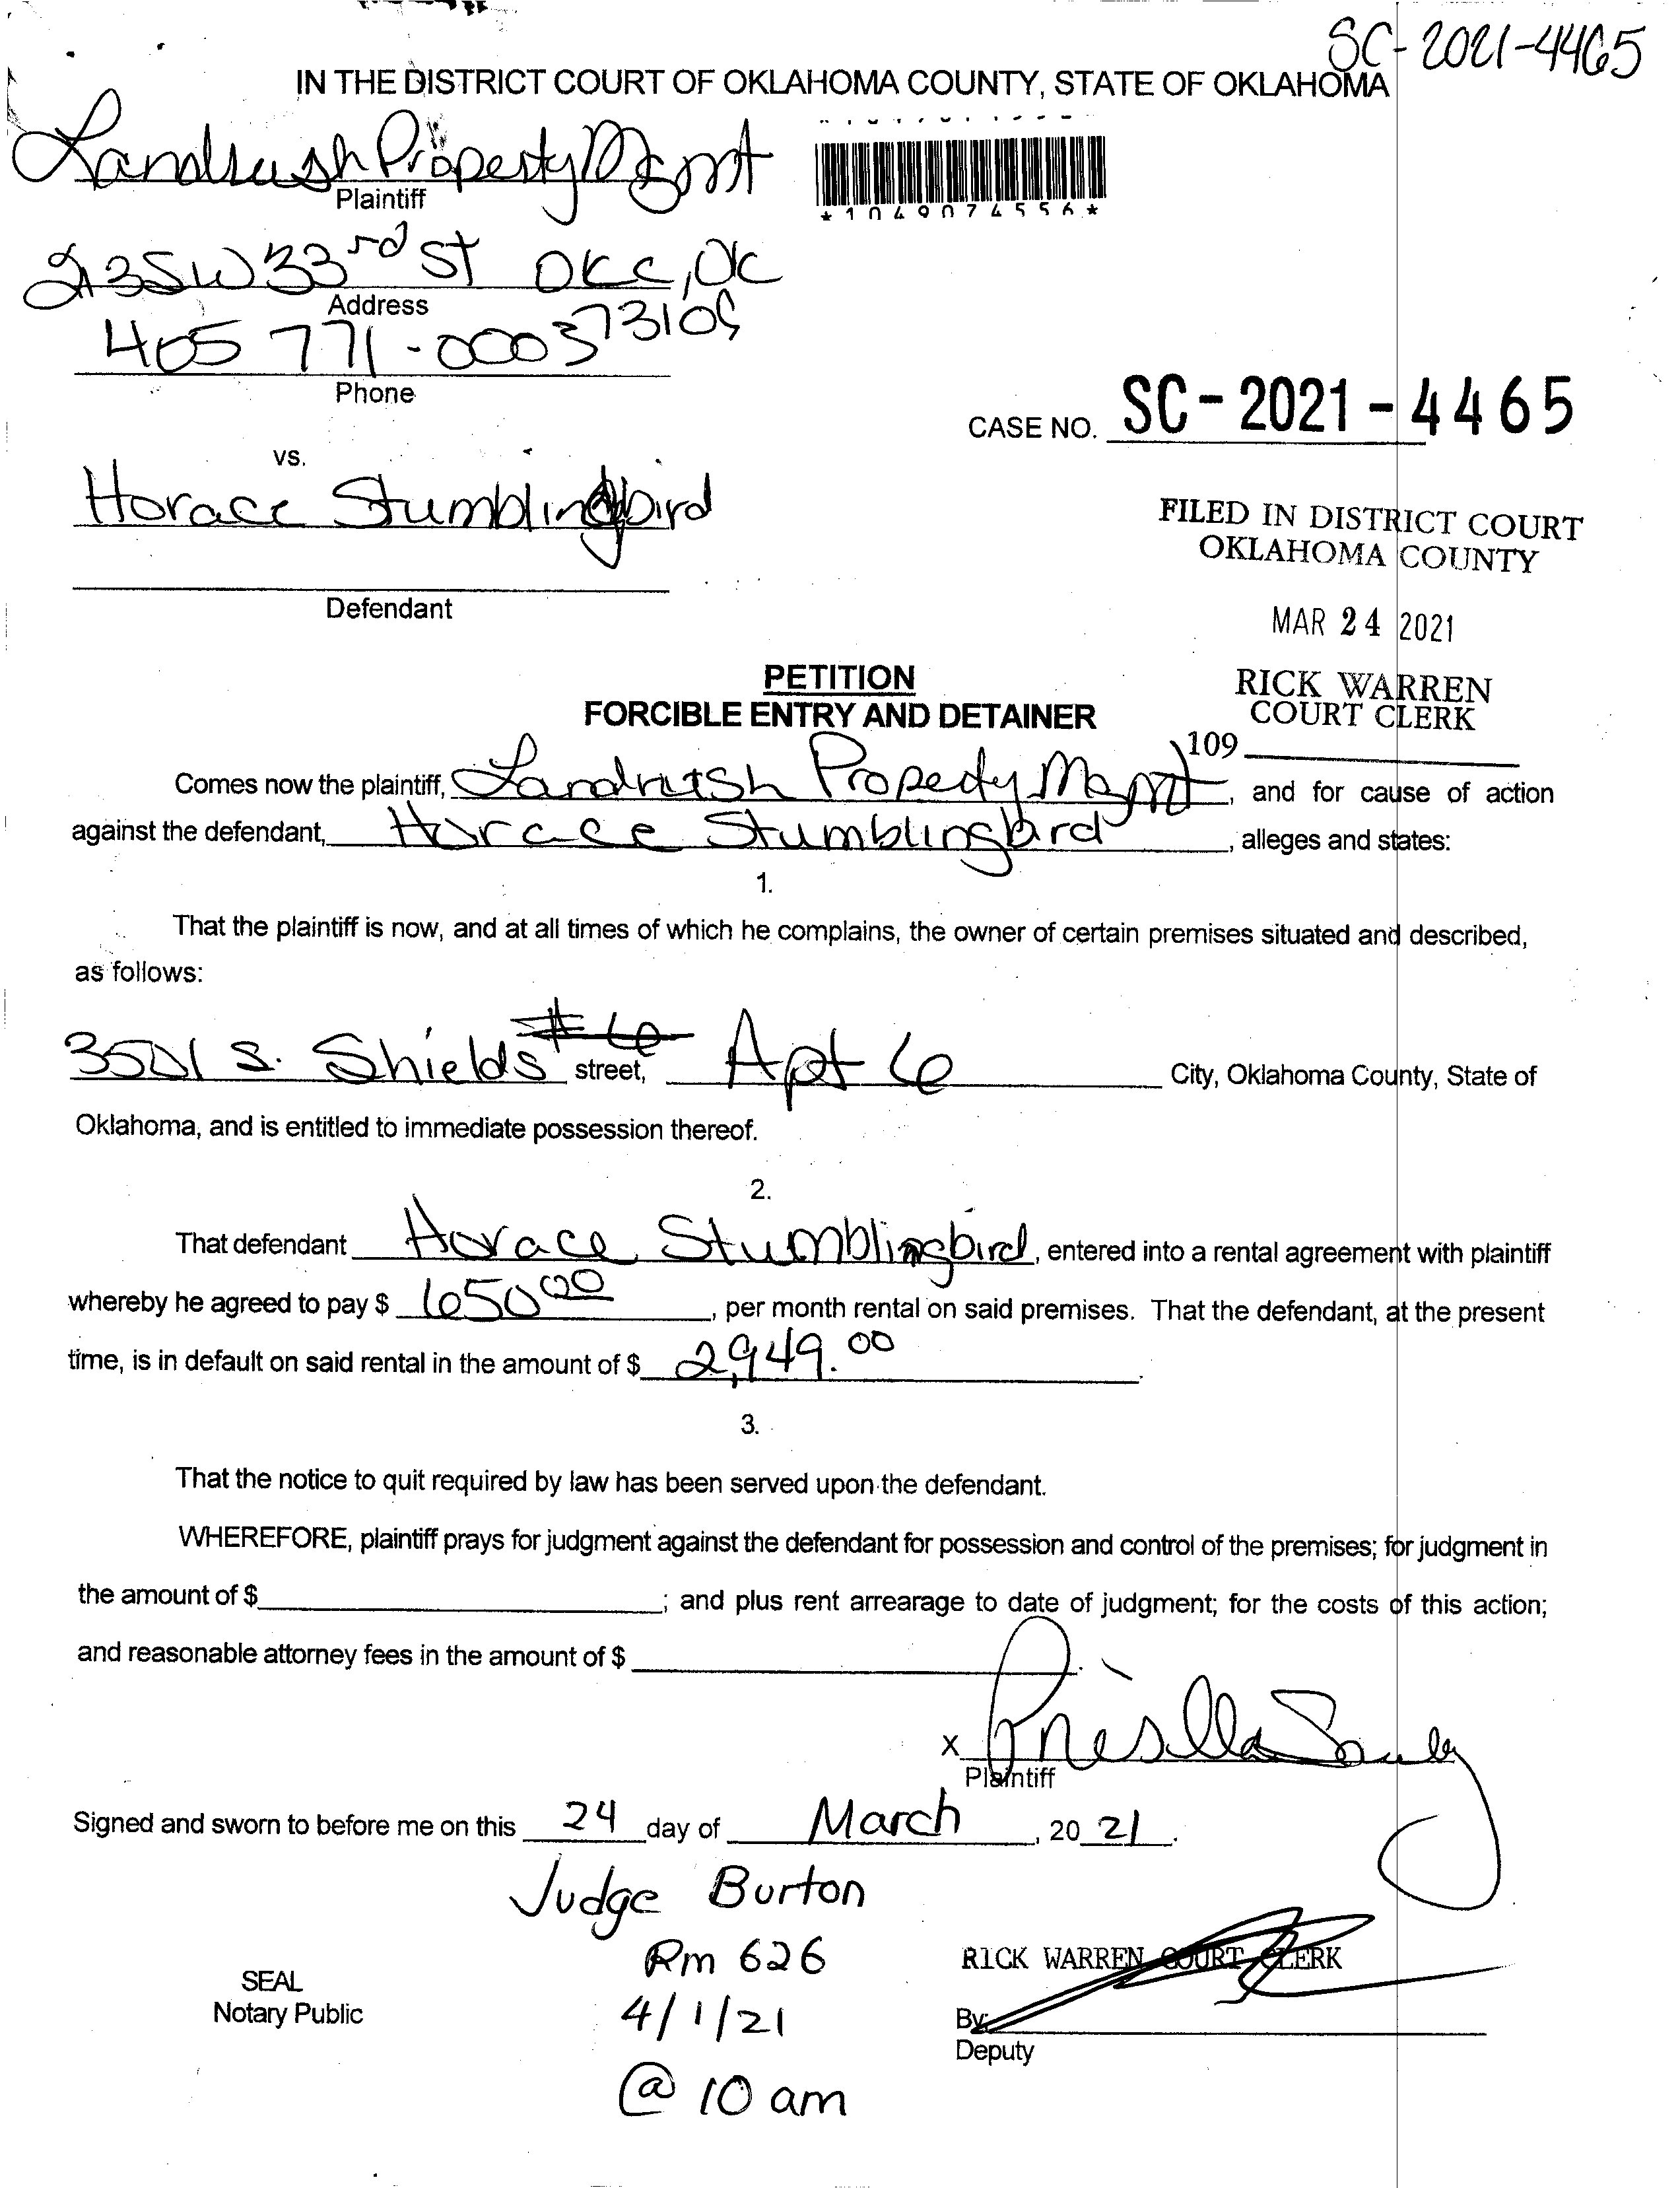 SC-2021-4465
IN THE DISTRICT COURT OF OKLAHOMA COUNTY, STATE OF OKLAHOMA
Landrush Property Mgmt
Plaintiff
*1049074556*
213 SW 33rd St OKC, OK
Address
73109
405 771-0003
Phone
CASE NO. SC-2021-4465
vs.
Horace Stumblingbird
FILED IN DISTRICT COURT
OKLAHOMA COUNTY
Defendant
MAR 24 2021
PETITION
RICK WARREN
FORCIBLE ENTRY AND DETAINER
COURT CLERK
109
Comes now the plaintiff, Landrush Property Mgmt, and for cause of action
against the defendant, Horace Stumblingbird, alleges and states:
1.
That the plaintiff is now, and at all times of which he complains, the owner of certain premises situated and described,
as follows:
3501 S. Shields #6 street, Apt 6 City, Oklahoma County, State of
Oklahoma, and is entitled to immediate possession thereof.
2.
That defendant Horace Stumblingbird, entered into a rental agreement with plaintiff
whereby he agreed to pay $ 650.00, per month rental on said premises. That the defendant, at the present
time, is in default on said rental in the amount of $ 2,949.00.
3.
That the notice to quit required by law has been served upon the defendant.
WHEREFORE, plaintiff prays for judgment against the defendant for possession and control of the premises; for judgment in
the amount of $; and plus rent arrearage to date of judgment; for the costs of this action;
and reasonable attorney fees in the amount of $.
X Priscilla
Plaintiff
Signed and sworn to before me on this 24 day of March, 20 21.
Judge Burton
Rm 626
RICK WARREN COURT CLERK
SEAL
Notary Public
4/1/21
By:
Deputy
@ 10 am